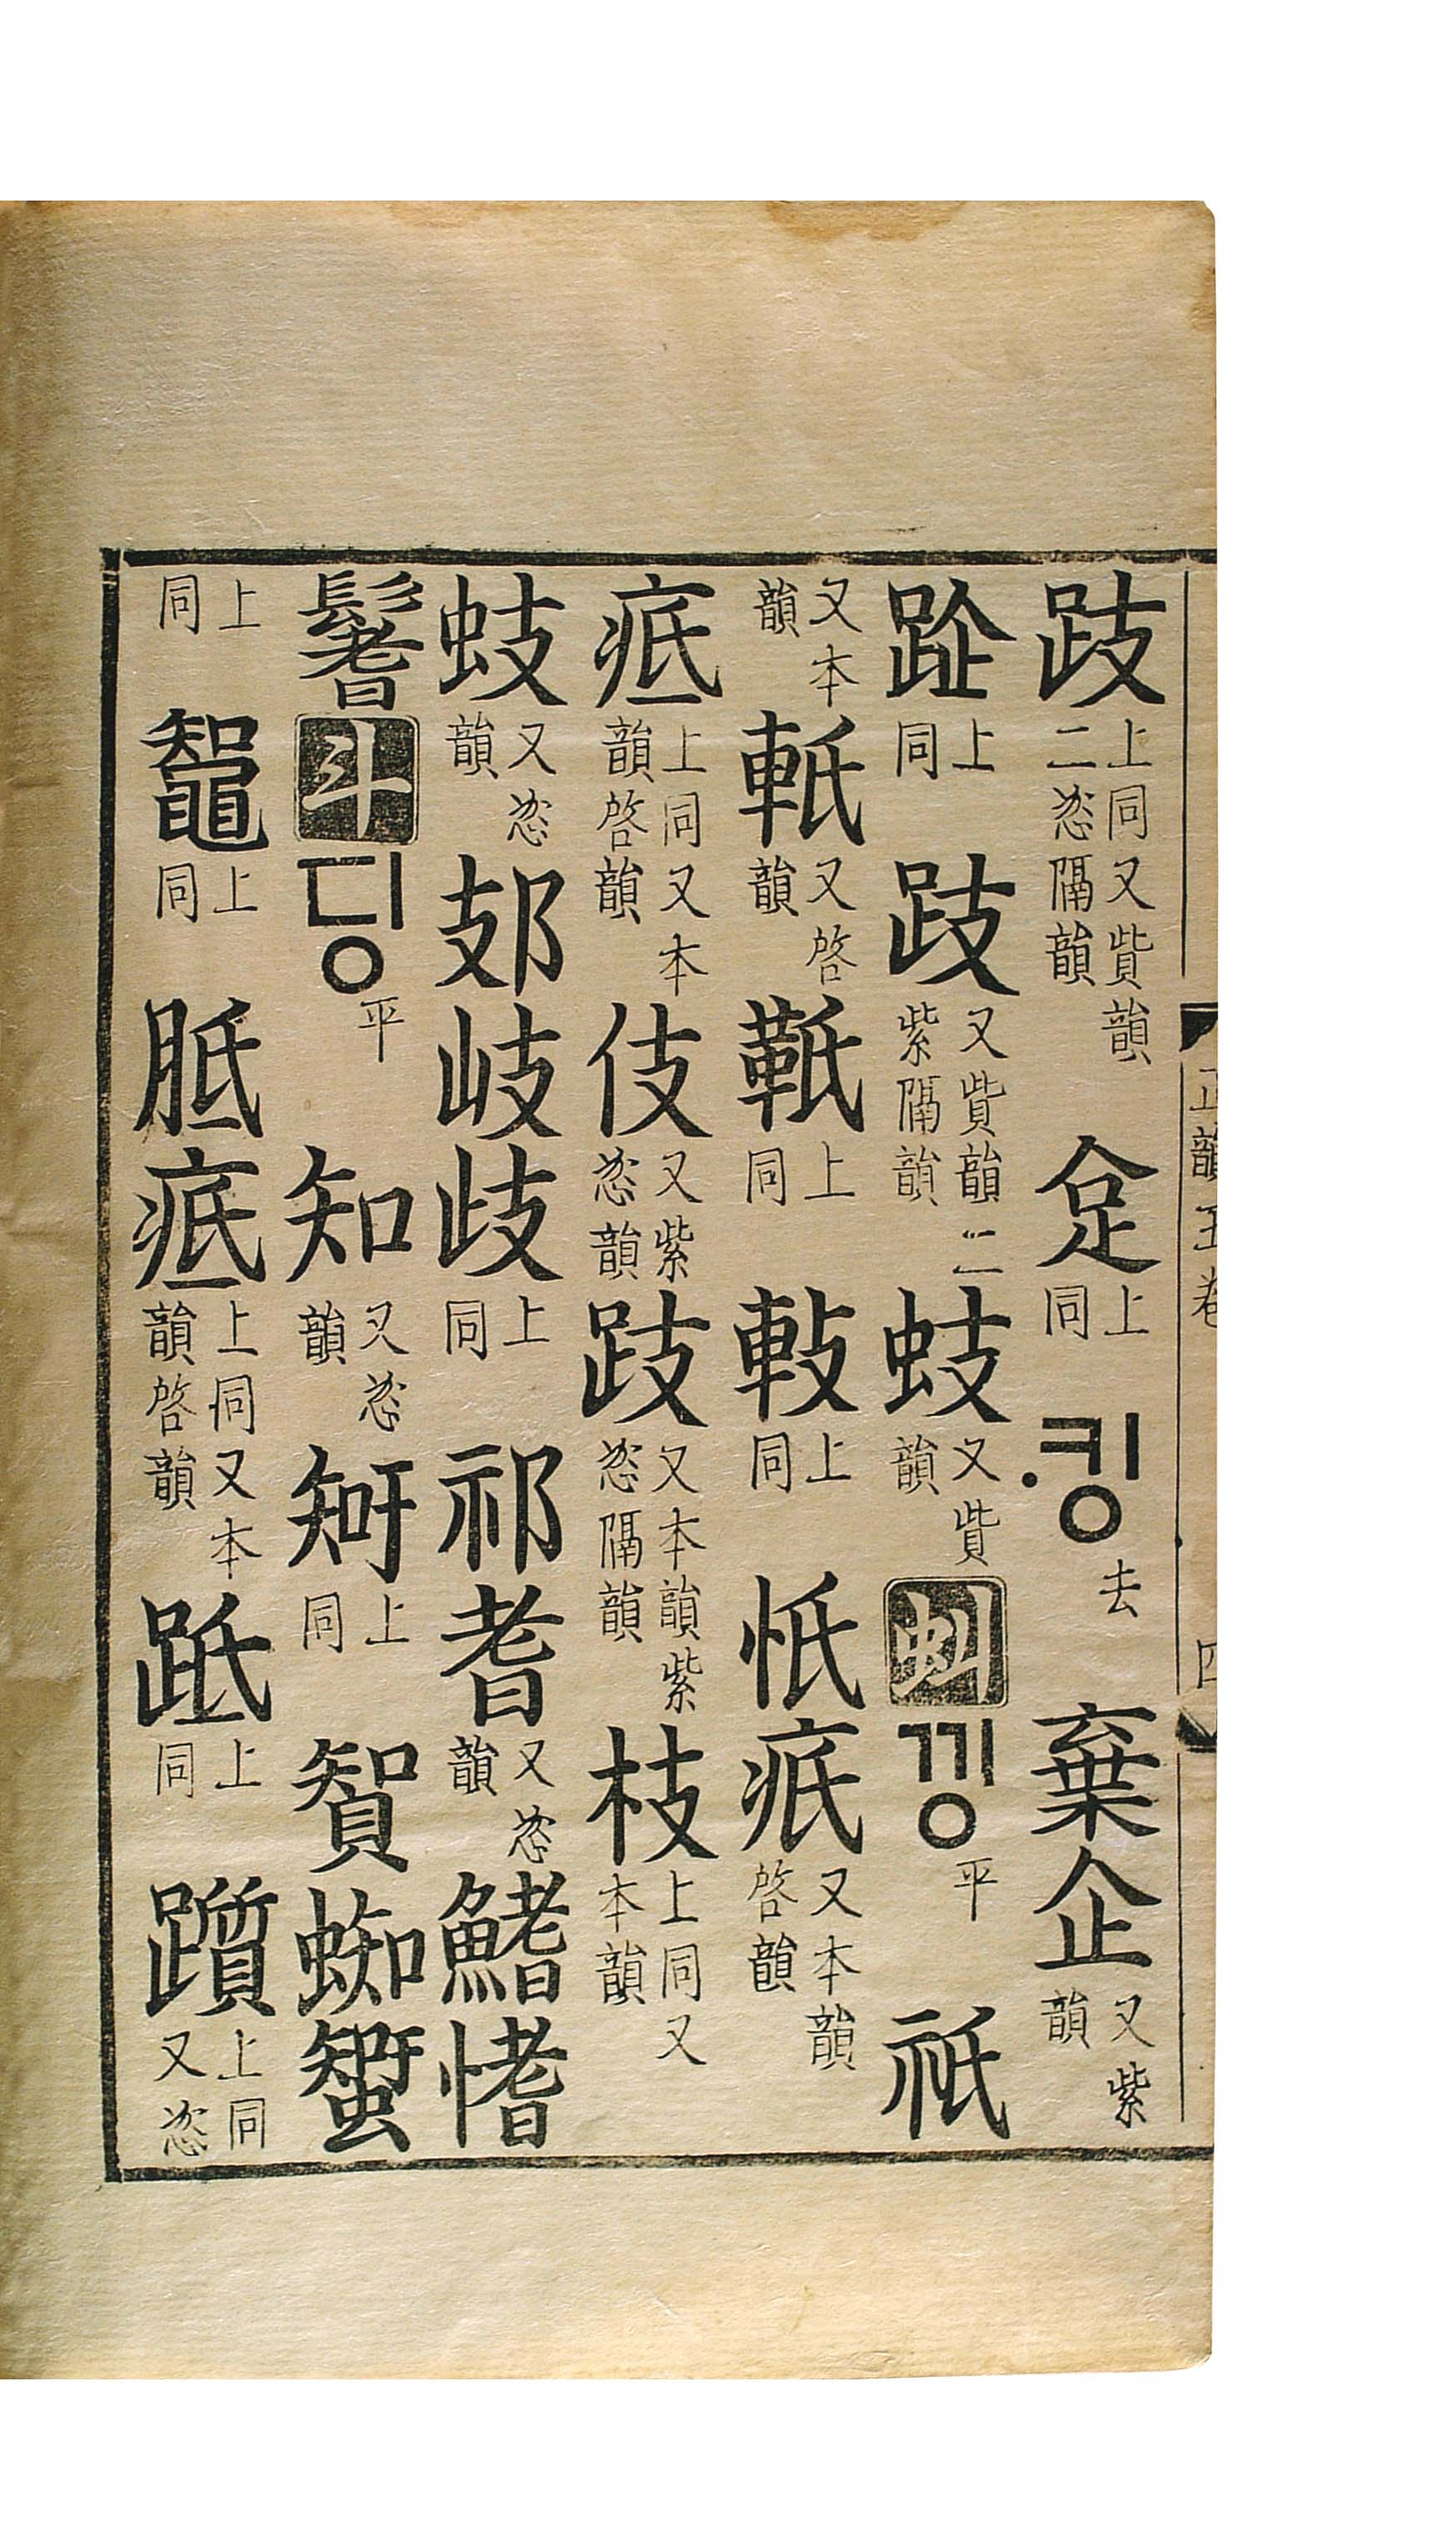 跂上同又貲韻二恣隔韻 上同 ·킹去 棄企又紫韻
上同 跂又貲韻二紫隔韻 蚑又貲韻 虯 낑平 祇
又本韻 軝又啓韻 上同 上同 忯疧又本韻啓韻
疷上同又本韻啓韻 伎又紫恣韻 跂又本韻紫恣隔韻 枝上同又本韻
蚑又恣韻 岐歧上同 祁耆又恣韻 鰭愭
鬐 斗 딩平 知又恣韻 上同 蜘
上同 鼅上同 胝疷上同又本韻啓韻 上同 躓上同又恣
正韻五卷 四